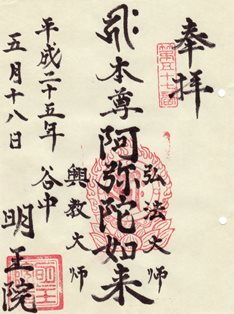 奉拝
弘法大师
本尊阿弥陀如来
興教大师
谷中 明王院
平成二十五年
五月十八日